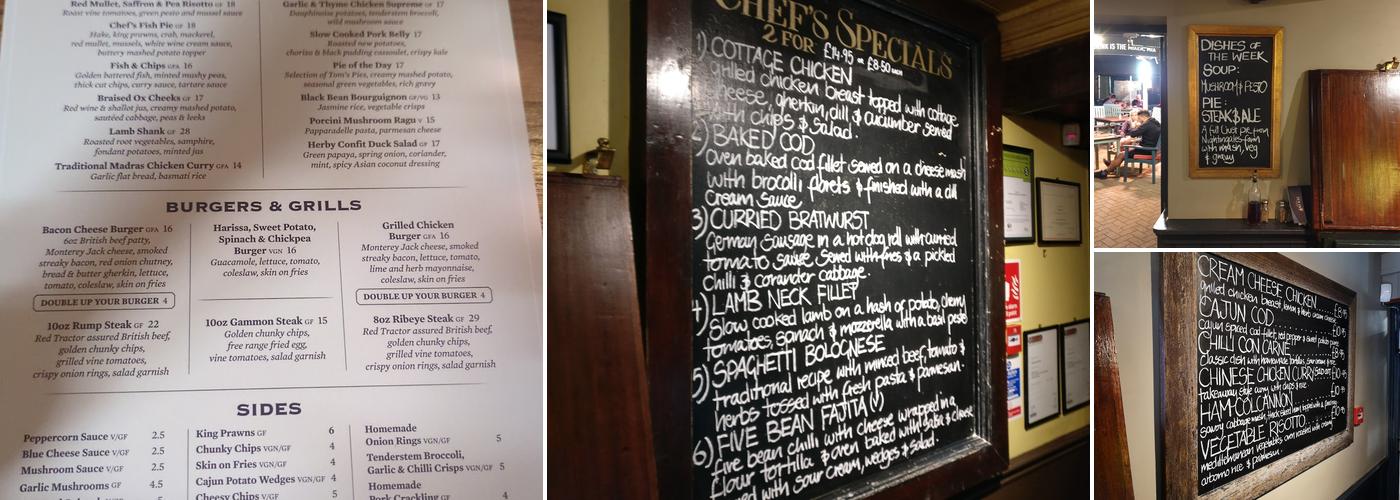 Red Mullet, Saffron & Pea Risotto GF 18
Roast vine tomatoes, green pesto and mussel sauce
Chef's Fish Pie GF 18
Hake, king prawns, crab, mackerel,
red mullet, mussels, white wine cream sauce,
buttery mashed potato topper
Fish & Chips GFA 16
Golden battered fish, minted mushy peas,
thick cut chips, curry sauce, tartare sauce
Braised Ox Cheeks GF 17
Red wine & shallot jus, creamy mashed potato,
sautéed cabbage, peas & leeks
Lamb Shank GF 28
Roasted root vegetables, samphire,
fondant potatoes, minted jus
Traditional Madras Chicken Curry GFA 14
Garlic flat bread, basmati rice
Garlic & Thyme Chicken Supreme GF 17
Dauphinoise potatoes, tenderstem broccoli,
wild mushroom sauce
Slow Cooked Pork Belly 17
Roasted new potatoes,
chorizo & black pudding cassoulet, crispy kale
Pie of the Day 17
Selection of Tom's Pies, creamy mashed potato,
seasonal green vegetables, rich gravy
Black Bean Bourguignon GF/VG 13
Jasmine rice, vegetable crisps
Porcini Mushroom Ragu V 15
Papparadelle pasta, parmesan cheese
Herby Confit Duck Salad GF 17
Green papaya, spring onion, coriander,
mint, spicy Asian coconut dressing
BURGERS & GRILLS
Bacon Cheese Burger GFA 16
6oz British beef patty,
Monterey Jack cheese, smoked
streaky bacon, red onion chutney,
bread & butter gherkin, lettuce,
tomato, coleslaw, skin on fries
DOUBLE UP YOUR BURGER 4
10oz Rump Steak GF 22
Red Tractor assured British beef,
golden chunky chips,
grilled vine tomatoes,
crispy onion rings, salad garnish
Harissa, Sweet Potato,
Spinach & Chickpea
Burger VGN 16
Guacamole, lettuce, tomato,
coleslaw, skin on fries
10oz Gammon Steak GF 15
Golden chunky chips,
free range fried egg,
vine tomatoes, salad garnish
Grilled Chicken
Burger GFA 16
Monterey Jack cheese, smoked
streaky bacon, lettuce, tomato,
lime and herb mayonnaise,
coleslaw, skin on fries
DOUBLE UP YOUR BURGER 4
8oz Ribeye Steak GF 29
Red Tractor assured British beef,
golden chunky chips,
grilled vine tomatoes,
crispy onion rings, salad garnish
SIDES
Peppercorn Sauce V/GF 2.5
Blue Cheese Sauce V/GF 2.5
Mushroom Sauce V/GF 2.5
Garlic Mushrooms GF 4.5
King Prawns GF 6
Chunky Chips VGN/GF 4
Skin on Fries VGN/GF 4
Cajun Potato Wedges VGN/GF 4
Cheesy Chips V/GF 5
Homemade
Onion Rings VGN/GF 5
Tenderstem Broccoli,
Garlic & Chilli Crisps VGN/GF 5
Homemade
Pork Crackling GF 4
CHEF'S SPECIALS
2 FOR £14.95 or £8.50 each
1) COTTAGE CHICKEN
grilled chicken breast topped with cottage
cheese, gherkin, dill & cucumber served
with chips & salad.
2) BAKED COD
oven baked cod fillet served on a cheese mash
with brocolli florets & finished with a dill
cream sauce
3) CURRIED BRATWURST
German sausage in a hot dog roll with curried
tomato sauce. Served with fries & a pickled
chilli & coriander cabbage.
4) LAMB NECK FILLET
Slow cooked lamb on a hash of potato, cherry
tomatoes, spinach & mozzerella with a basil pesto
5) SPAGHETTI BOLOGNESE
traditional recipe with minced beef, tomato &
herbs tossed with fresh pasta & parmesan.
6) FIVE BEAN FAJITA (V)
five bean chilli with cheese wrapped in a
flour tortilla & oven baked with salsa & cheese
served with sour cream, wedges & salad.
DISHES OF
THE WEEK
SOUP:
MUSHROOM & PESTO
PIE:
STEAK & ALE
A full crust pie from
Nightingales farm
with mash, veg
& gravy
CREAM CHEESE CHICKEN £8.95
grilled chicken breast, lemon & herb cream cheese
CAJUN COD £10.95
cajun spiced cod fillet, red pepper & sweet potato
CHILLI CON CARNE £8.95
Classic dish with homemade tortillas, sour cream & rice
CHINESE CHICKEN CURRY £10.95
takeaway style curry with chips & rice
HAM COLCANNON
savoy cabbage mash, thick sliced ham topped with a
VEGETABLE RISOTTO
mediterranean vegetables oven roasted with creamy
arborio rice & parmesan.